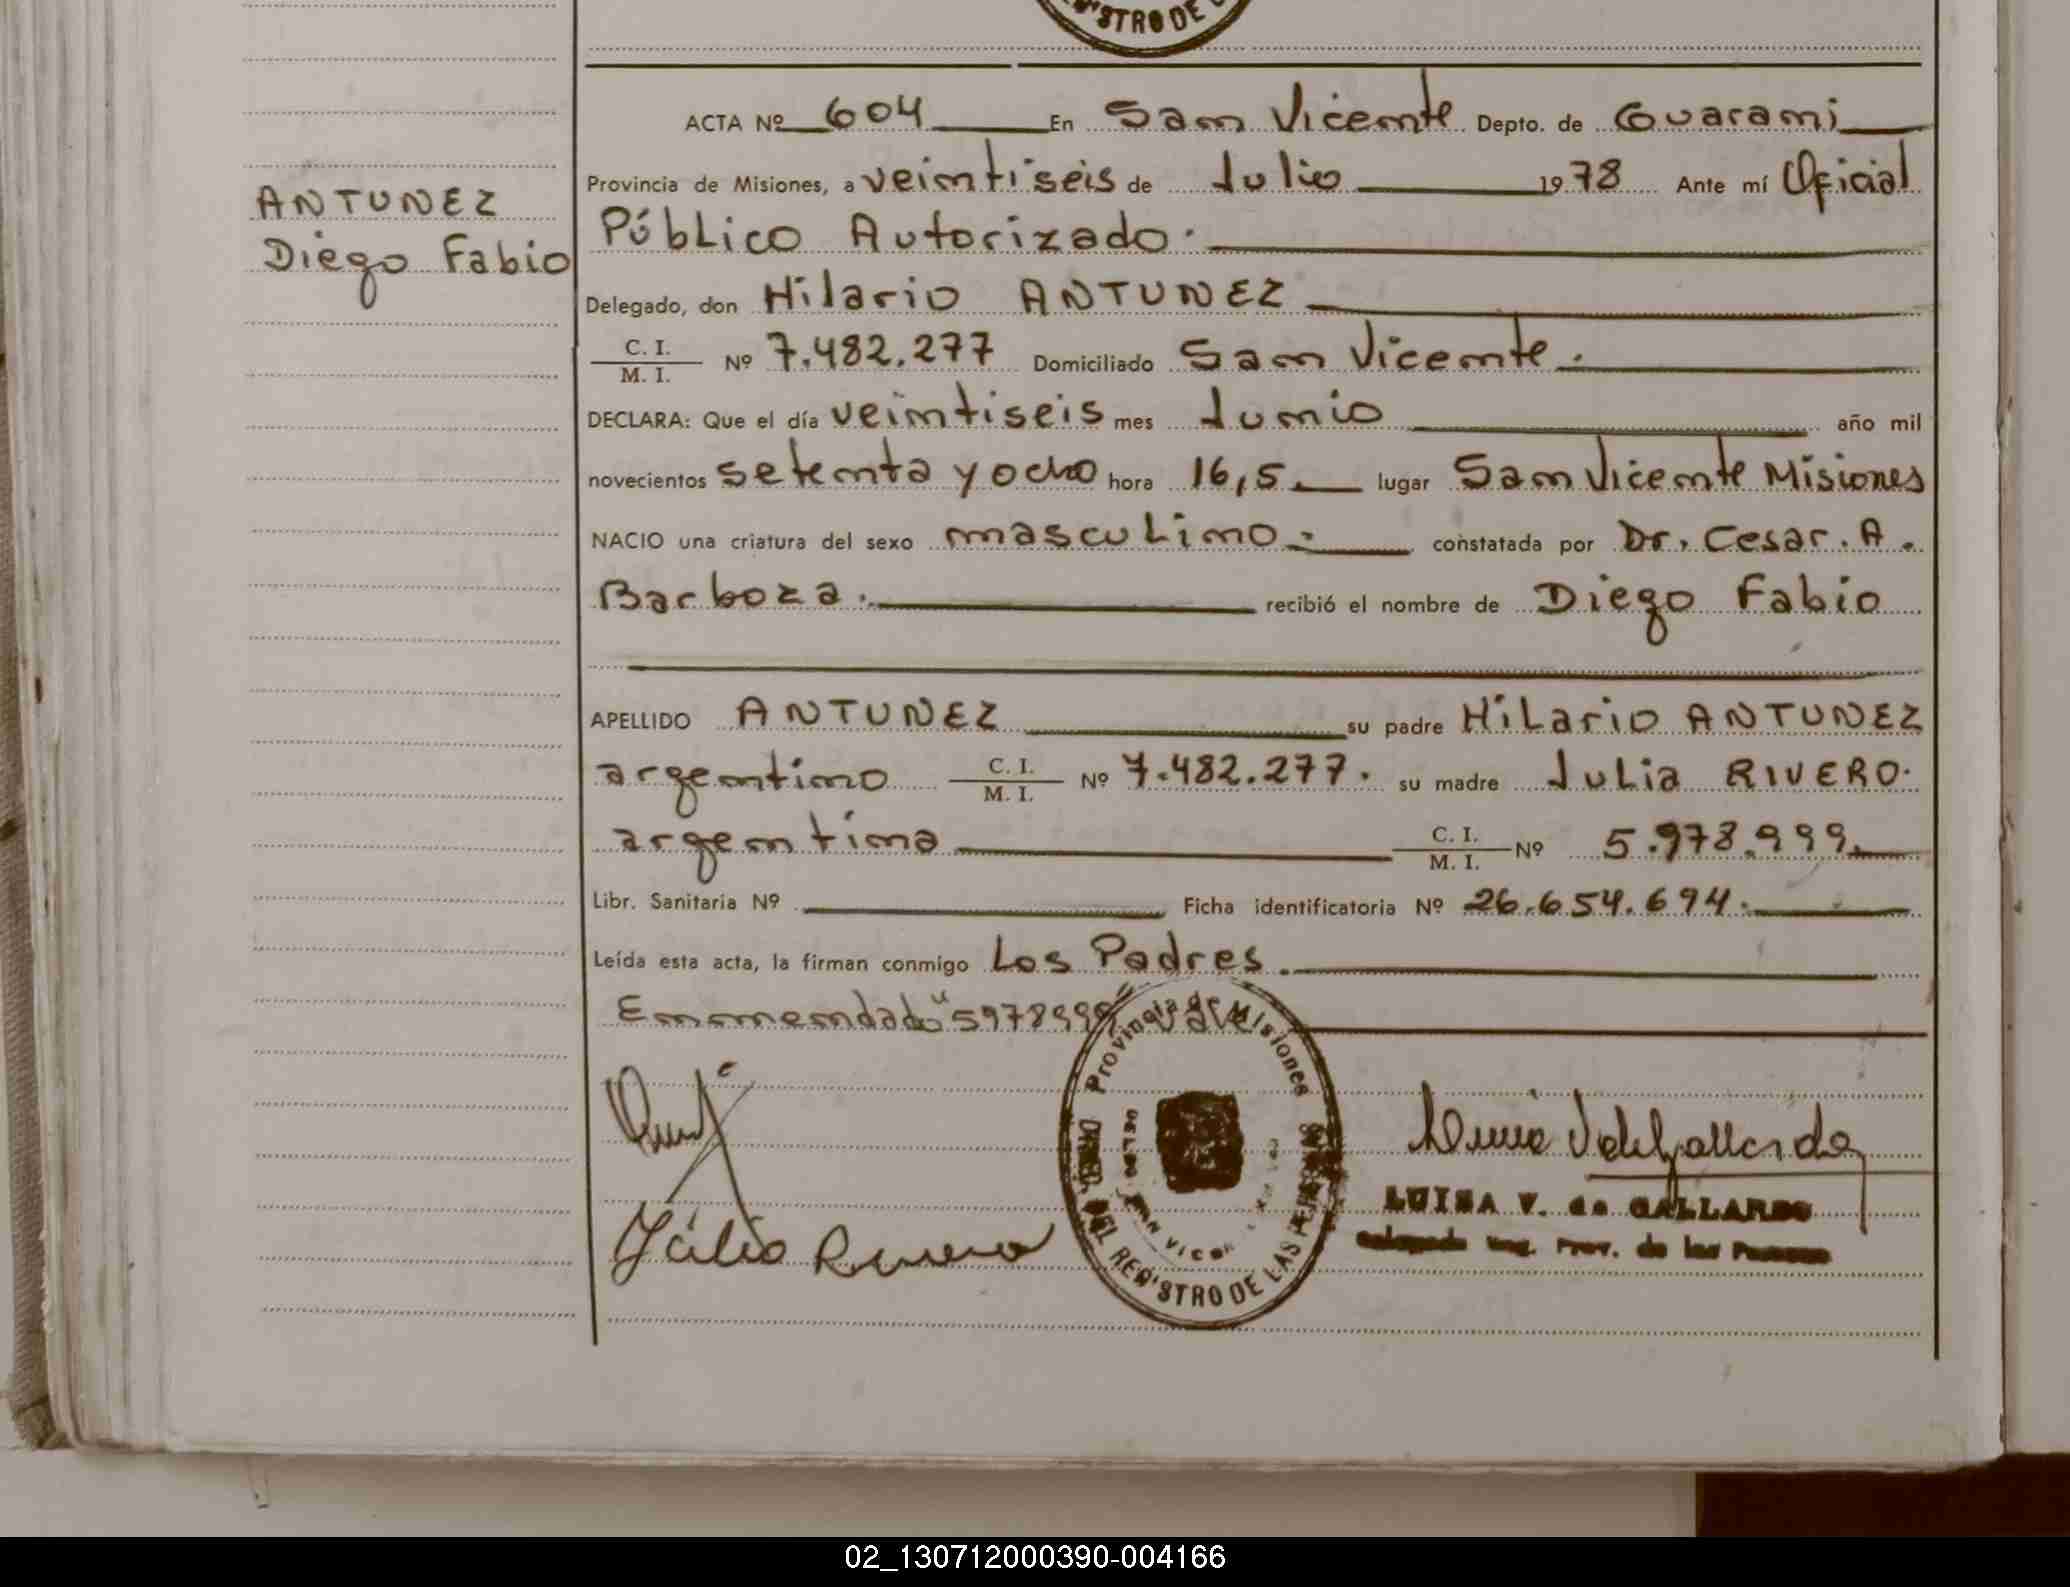 ISTRO DE L
ACTA Nº 604 En San Vicente Depto. de Guarani
Provincia de Misiones, a veintiseis de Julio 1978 Ante mí Oficial
ANTUNEZ
Público Autorizado.
Diego Fabio
Delegado, don Hilario ANTUNEZ
C. I.
M. I. Nº 7.482.277 Domiciliado San Vicente.
DECLARA: Que el día veintiseis mes Junio año mil
novecientos setenta y ocho hora 16,5 lugar San Vicente Misiones
NACIO una criatura del sexo masculino.- constatada por Dr. Cesar. A.
Barboza. recibió el nombre de Diego Fabio
APELLIDO ANTUNEZ su padre Hilario ANTUNEZ
argentino C. I.
M. I. Nº 7.482.277. su madre Julia RIVERO.
argentina C. I.
M. I. Nº 5.978.999.
Libr. Sanitaria Nº Ficha identificatoria Nº 26.654.694.
Leída esta acta, la firman conmigo Los Padres.
Enmendado "5978999" vale
Provincia de Misiones
DIREC. DEL REGISTRO DE LAS PERSONAS
Julia Rivero
LUISA V. de GALLARDO
Delegada Reg. Prov. de las Personas
02_130712000390-004166